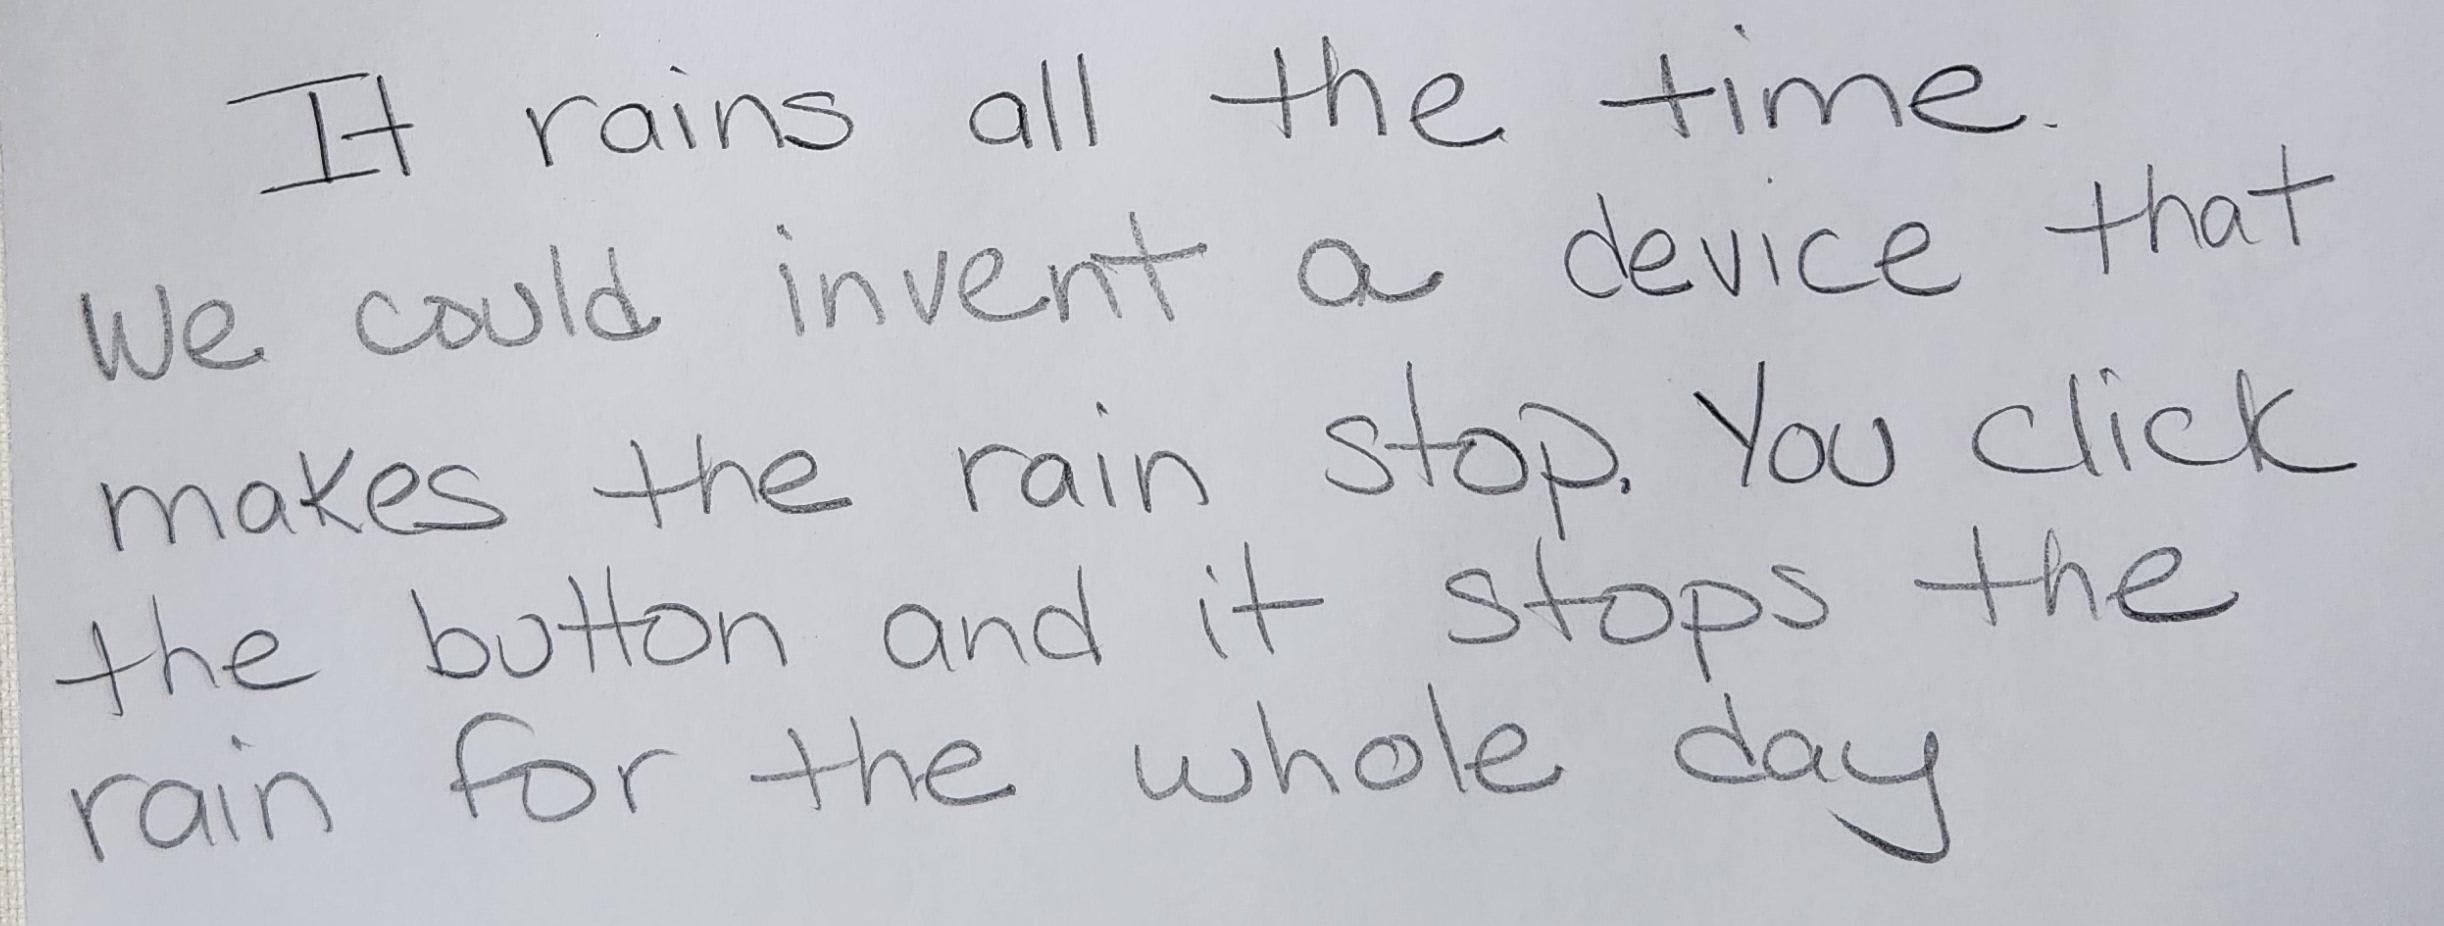 It rains all the time.
We could invent a device that
makes the rain stop. You click
the button and it stops the
rain for the whole day